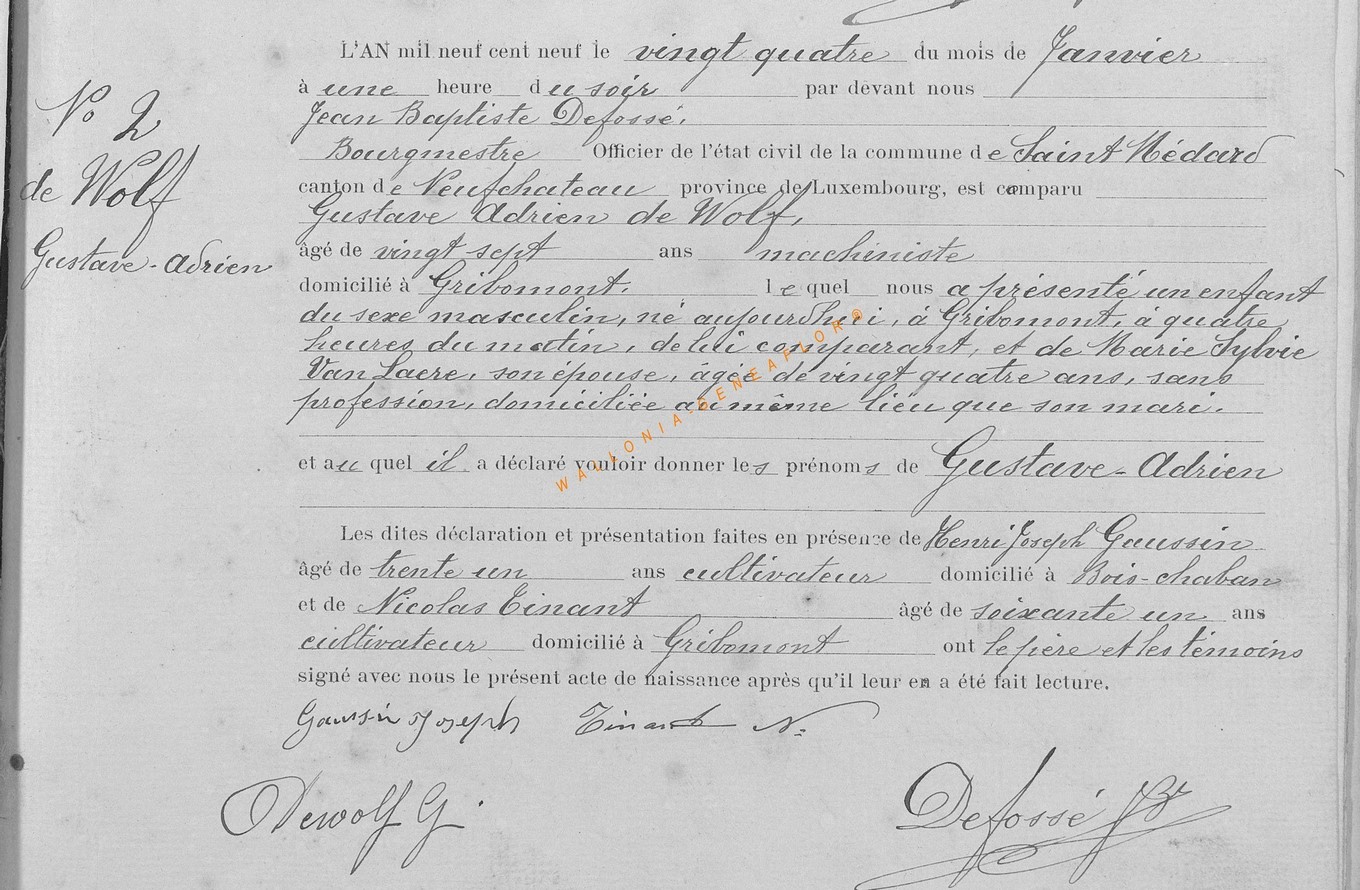 L'AN mil neuf cent neuf le vingt quatre du mois de Janvier
à une heure du soir par devant nous
Jean Baptiste Defossé,
Bourgmestre Officier de l'état civil de la commune de Saint Médard
canton de Neufchateau province de Luxembourg, est comparu
Gustave Adrien de Wolf,
âgé de vingt sept ans machiniste
domicilié à Gribomont. lequel nous a présenté un enfant
du sexe masculin, né aujourd'hui, à Gribomont, à quatre
heures du matin, de lui comparant, et de Marie Sylvie
Van Laere, son épouse, âgée de vingt quatre ans, sans
profession, domiciliée au même lieu que son mari.
et au quel il a déclaré vouloir donner les prénoms de Gustave-Adrien
Les dites déclaration et présentation faites en présence de Henri Joseph Gaussin
âgé de trente un ans cultivateur domicilié à Bois-chaban
et de Nicolas Tinant âgé de soixante un ans
cultivateur domicilié à Gribomont ont le père et les témoins
signé avec nous le présent acte de naissance après qu'il leur en a été fait lecture.
Gaussin Joseph Tinant N.
Dewolf G. Defossé JB
No 2
de Wolf
Gustave-Adrien
WALLONIA-GENEAFLOR©